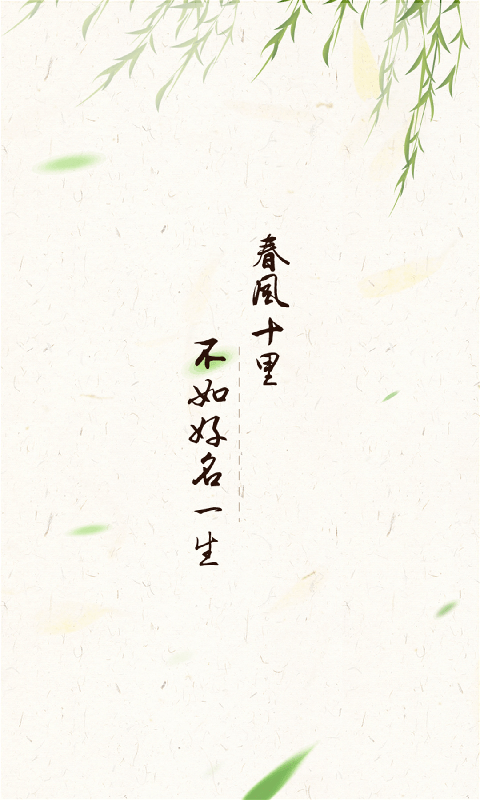 春风十里
不如好名一生